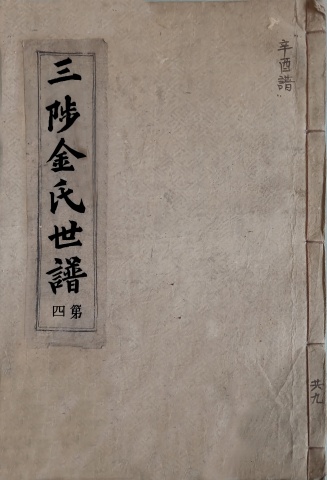 辛酉譜
三陟金氏世譜
第四
共九